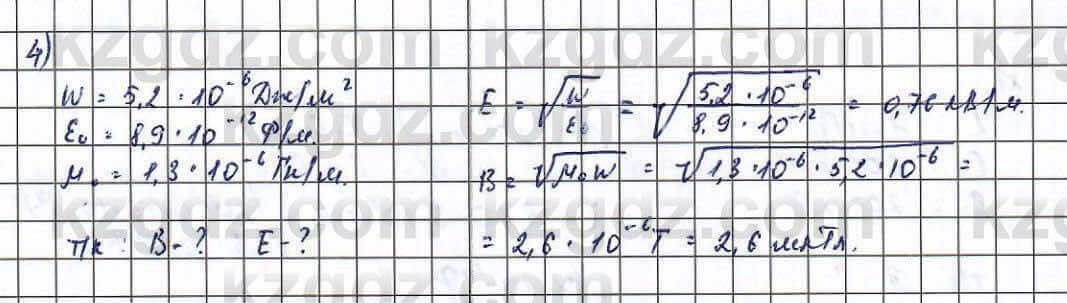 4)
W = 5,2 · 10⁻⁶ Дж/м²
ε₀ = 8,9 · 10⁻¹² Ф/м.
μ₀ = 1,3 · 10⁻⁶ Гн/м.
Тк : B - ? E - ?
E = √(W/ε₀) = √(5,2 · 10⁻⁶ / 8,9 · 10⁻¹²) = 0,76 кВ/м.
B = √(μ₀W) = √(1,3 · 10⁻⁶ · 5,2 · 10⁻⁶) =
= 2,6 · 10⁻⁶ Т = 2,6 мкТл.
kzgdz.com kzgdz.com
kzgdz.com kzgdz.com